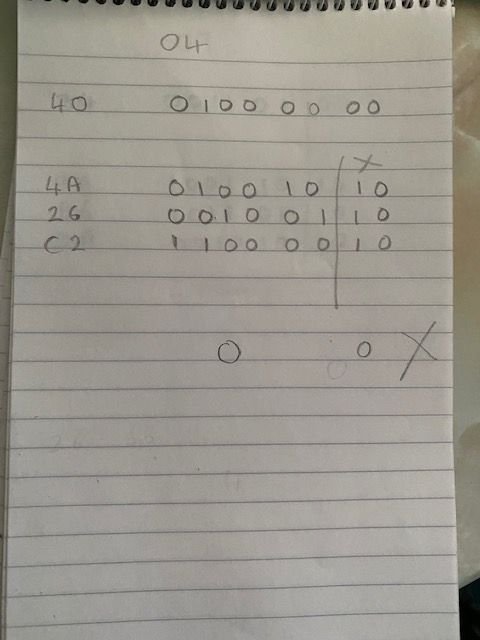 04
40 0100 00 00
X
4A 0100 10 10
26 0010 01 10
C2 1100 00 10
0 0 X